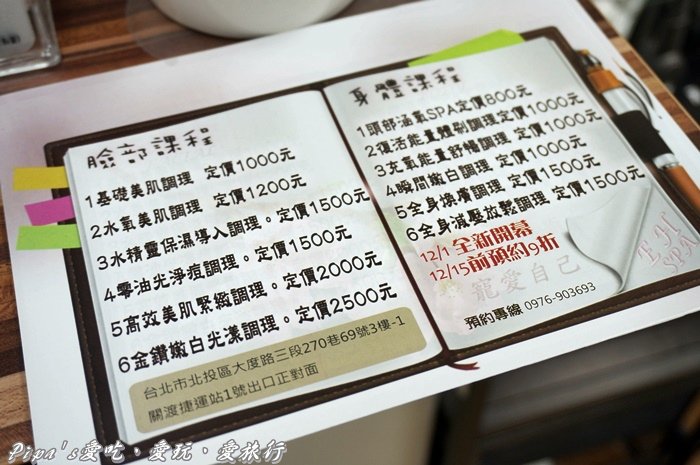 臉部課程
1基礎美肌調理 定價1000元
2水氧美肌調理 定價1200元
3水精靈保濕導入調理。定價1500元
4零油光淨痘調理。定價1500元
5高效美肌緊緻調理。定價2000元
6金鑽嫩白光漾調理。定價2500元
台北市北投區大度路三段270巷69號3樓-1
關渡捷運站1號出口正對面
身體課程
1頭部涵氧SPA定價800元
2復活能量體刷調理定價1000元
3充氧能量舒暢調理 定價1000元
4瞬間嫩白調理 定價1000元
5全身煥膚調理 定價1500元
6全身減壓放鬆調理 定價1500元
12/1 全新開幕
12/15前預約9折
寵愛自己
預約專線 0976-903693
SPA
Pipa's愛吃、愛玩、愛旅行